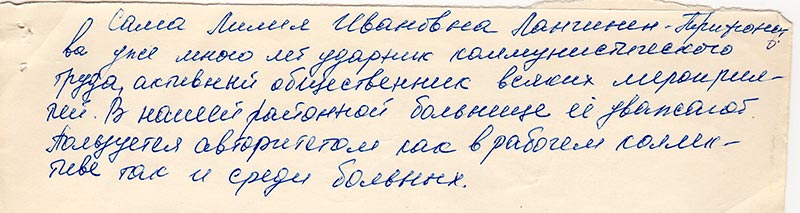 Сама Лилия Ивановна Лангинен-Тритонец
ва уже много лет ударник коммунистического
труда, активный общественник всяких мероприя-
тий. В нашей районной больнице её уважают.
Пользуется авторитетом как в рабочем коллек-
тиве так и среди больных.